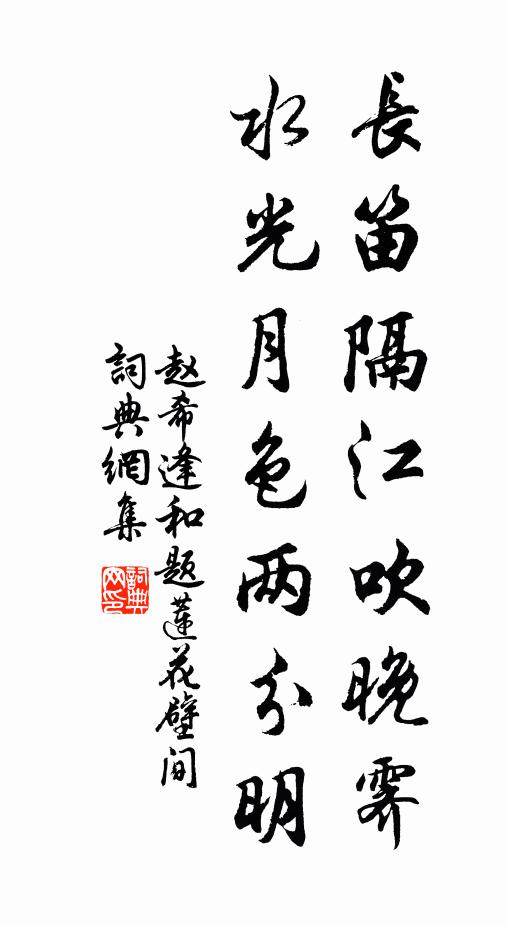 長笛隔江吹晚霽
水光月色两分明
赵希逢和题蓮花壁间
詞典網集
詞典
网印